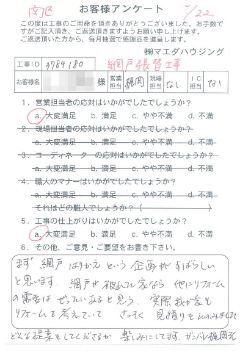 南区
7/22
お客様アンケート
この度は工事のご用命を頂きありがとうございました。お手数で
すがご記入頂き、ご返送頂きますようお願い申し上げます。
ご返送頂いた方から、毎月抽選で粗品を進呈致します。
㈱マエダハウジング
工事ID 4984180 網戸張替工事
お客様名 様 営業担当 福岡 現場担当 なし IC担当 なし
1. 営業担当者の応対はいかがでしたでしょうか?
a. 大変満足 b. 満足 c. やや不満 d. 不満
2. 現場担当者の応対はいかがでしたでしょうか?
a. 大変満足 b. 満足 c. やや不満 d. 不満
3. コーディネーターの応対はいかがでしたでしょうか?
a. 大変満足 b. 満足 c. やや不満 d. 不満
4. 職人のマナーはいかがでしたでしょうか?
それはどの職人でしょうか?( )
5. 工事の仕上がりはいかがでしたでしょうか?
a. 大変満足 b. 満足 c. やや不満 d. 不満
6. その他、ご意見・ご要望をお書き下さい。
まず 網戸はりかえ という 企画が すばらしい
と思います。網戸が破れて居る 他にリフォーム
の需要は ぜったいあると思う。実際我が家も
リフォームを考えていて さっそく 見積りを
どんな提案をしてくださるか 楽しみにしてます。ガンバレ福岡